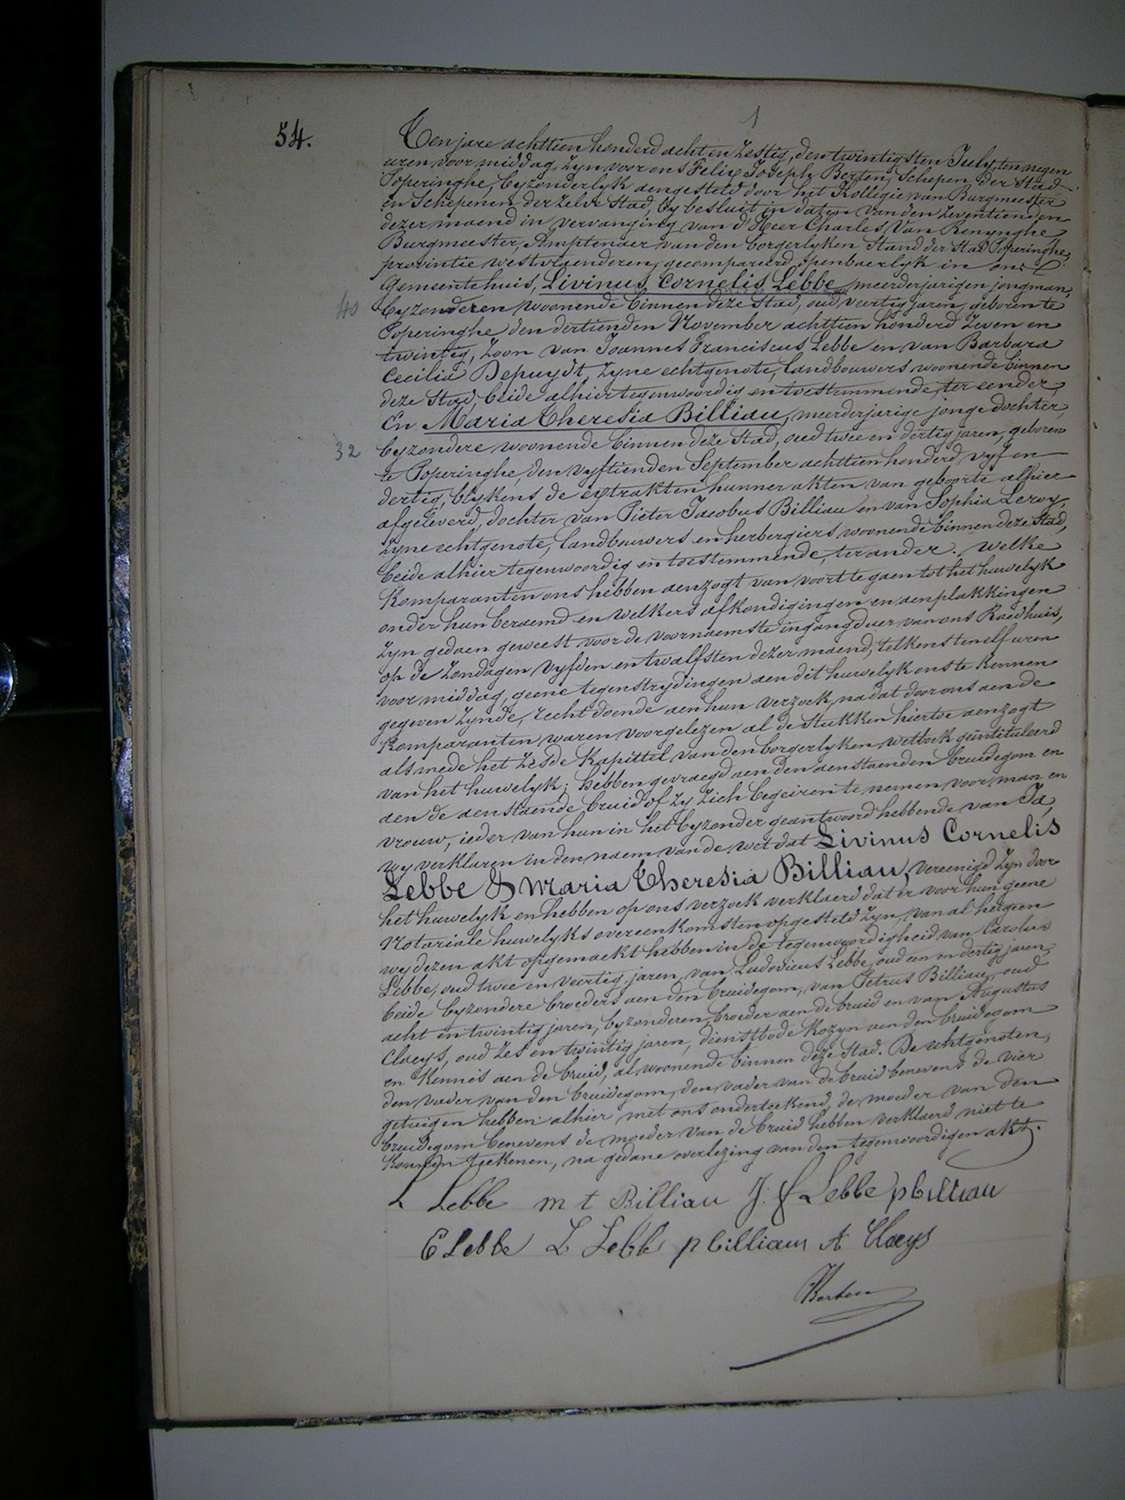 1
54.
Ten jare achttien honderd acht en zestig, den twintigsten July ten negen
uren voor middag, zyn voor ons Felix Joseph Berten, Schepen der Stad
Poperinghe, byzonderlyk aengesteld door het Kollegie van Burgmeester
en Schepenen der zelve Stad, by besluit in daten van den zeventienden
dezer maend in vervanging van d'Heer Charles Van Renynghe
Burgmeester, Amptenaer van den borgerlyken Stand der Stad Poperinghe,
provintie westvlaenderen, gecompareerd openbaerlyk in ons
Gemeentehuis, Livinus Cornelis Lebbe, meerderjarigen jongman,
40 byzonderen woonende binnen deze Stad, oud veertig jaren, geboren te
Poperinghe den dertienden November achttien honderd zeven en
twintig, zoon van Joannes Franciscus Lebbe en van Barbara
Cecilia Depuydt, zyne echtgenote, landbouwers woonende binnen
deze Stad, beide alhier tegenwoordig en toestemmende, ter eender,
En Maria Theresia Billiau, meerderjarige jonge dochter,
32 byzondere woonende binnen deze Stad, oud twee en dertig jaren, geboren
te Poperinghe, den vyftienden September achttien honderd vyf en
dertig, blykens de extrakten hunner akten van geboorte alhier
afgeleverd, dochter van Pieter Jacobus Billiau en van Sophia Leroy,
zyne echtgenote, landbouwers en herbergiers woonende binnen deze Stad,
beide alhier tegenwoordig en toestemmende, ter ander. Welke
Komparanten ons hebben aenzogt van voort te gaen tot het huwelyk
onder hun beraemd en welkers afkondigingen en aenplakkingen
zyn gedaen geweest voor de voornaemste ingangdeur van ons Raedhuis,
op de zondagen vyfden en twalfsten dezer maend, telkens ten elf uren
voor middag, geene tegenstrydingen aen dit huwelyk ons te kennen
gegeven zynde, recht doende aen hun verzoek, na dat door ons aen de
Komparanten waren voorgelezen al de stukken hiertoe aenzogt
alsmede het zesde Kapittel van den borgerlyken wetboek geintituleerd
van het huwelyk; hebben gevraegd aen den aenstaenden bruidegom en
aen de aenstaende bruid of zy zich begeiren te nemen voor man en
vrouw, ieder van hun in het byzonder geantwoord hebbende van Ja,
wy verklaren in den naem van de wet dat Livinus Cornelis
Lebbe & Maria Theresia Billiau, vereenigd zyn door
het huwelyk en hebben op ons verzoek verklaerd dat er voor hun geene
Notariale huwelyks overeenkomsten opgesteld zyn, van al hetgeen
wy dezen akt opgemaekt hebben in de tegenwoordigheid van Carolus
Lebbe, oud twee en veertig jaren, van Ludovicus Lebbe, oud een en dertig jaren,
beide byzondere broeders aen den bruidegom, van Petrus Billiau, oud
acht en twintig jaren, byzonderen, broeder aen de bruid en van Augustus
Claeys, oud zes en twintig jaren, dienstbode Kozyn aen den bruidegom
en Kennis aen de bruid, al woonende binnen deze Stad. De echtgenoten,
den vader van den bruidegom, den vader van de bruid benevens de vier
getuigen hebben alhier met ons onderteekend, de moeder van den
bruidegom benevens de moeder van de bruid hebben verklaerd niet te
konnen teekenen, na gedane overlezing van den tegenwoordigen akt.
L Lebbe m t Billiau J. f Lebbe p billiau
C Lebbe L Lebbe p billiau A Claeys
Berten